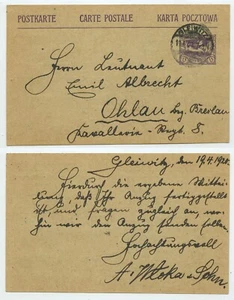 POSTKARTE CARTE POSTALE KARTA POCZTOWA
Herrn Leutnant
Emil Albrecht
Ohlau bez. Breslau
Kavallerie-Regt. 8.
Gleiwitz, den 19.4.1920.
Hierdurch die ergebene Mittei-
lung, daß Ihr Anzug fertiggestellt
ist, und fragen zugleich an, wo-
hin wir den Anzug senden sollen.
Hochachtungsvoll
A. Wloka & Sohn.